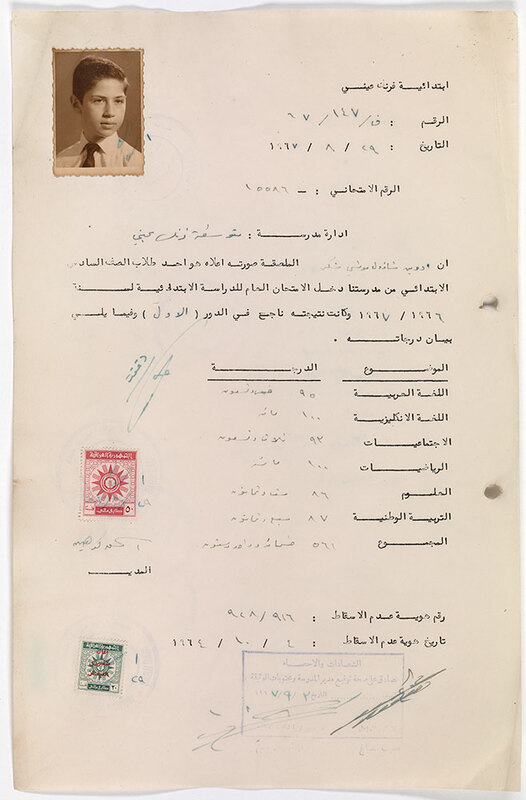 ابتدائية فرنك عيني
الرقم : ف/١٤٧/٦٧
التاريخ : ٢٩ / ٨ / ١٩٦٧
الرقم الامتحاني : ـ ١٥٥٨٦
ادارة مدرسة : متوسطة فرنك عيني
ان شاؤول الملصقة صورته اعلاه هو احد طلاب الصف السادس
الابتدائي من مدرستنا دخل الامتحان العام للدراسة الابتدائية لسنة
١٩٦٦ / ١٩٦٧ وكانت نتيجته ناجح في الدور ( الاول ) وفيما يلي
بيان درجاته .
الموضوع الدرجة
اللغة العربية ٩٥ خمسة وتسعون
اللغة الانكليزية ١٠٠ مائة
الاجتماعيات ٩٣ ثلاث وتسعون
الرياضيات ١٠٠ مائة
العلوم ٨٦ ستة وثمانون
التربية الوطنية ٨٧ سبع وثمانون
المجموع ٥٦١ خمسمائة وواحد وستون
المدير
رقم هوية عدم الاسقاط : ٩٢٨/٩١٦
تاريخ هوية عدم الاسقاط : ٤ / ١٠ / ١٩٦٤
الشهادات والاحصاء
صادق على صحة توقيع مدير المدرسة ومحتويات الوثيقة